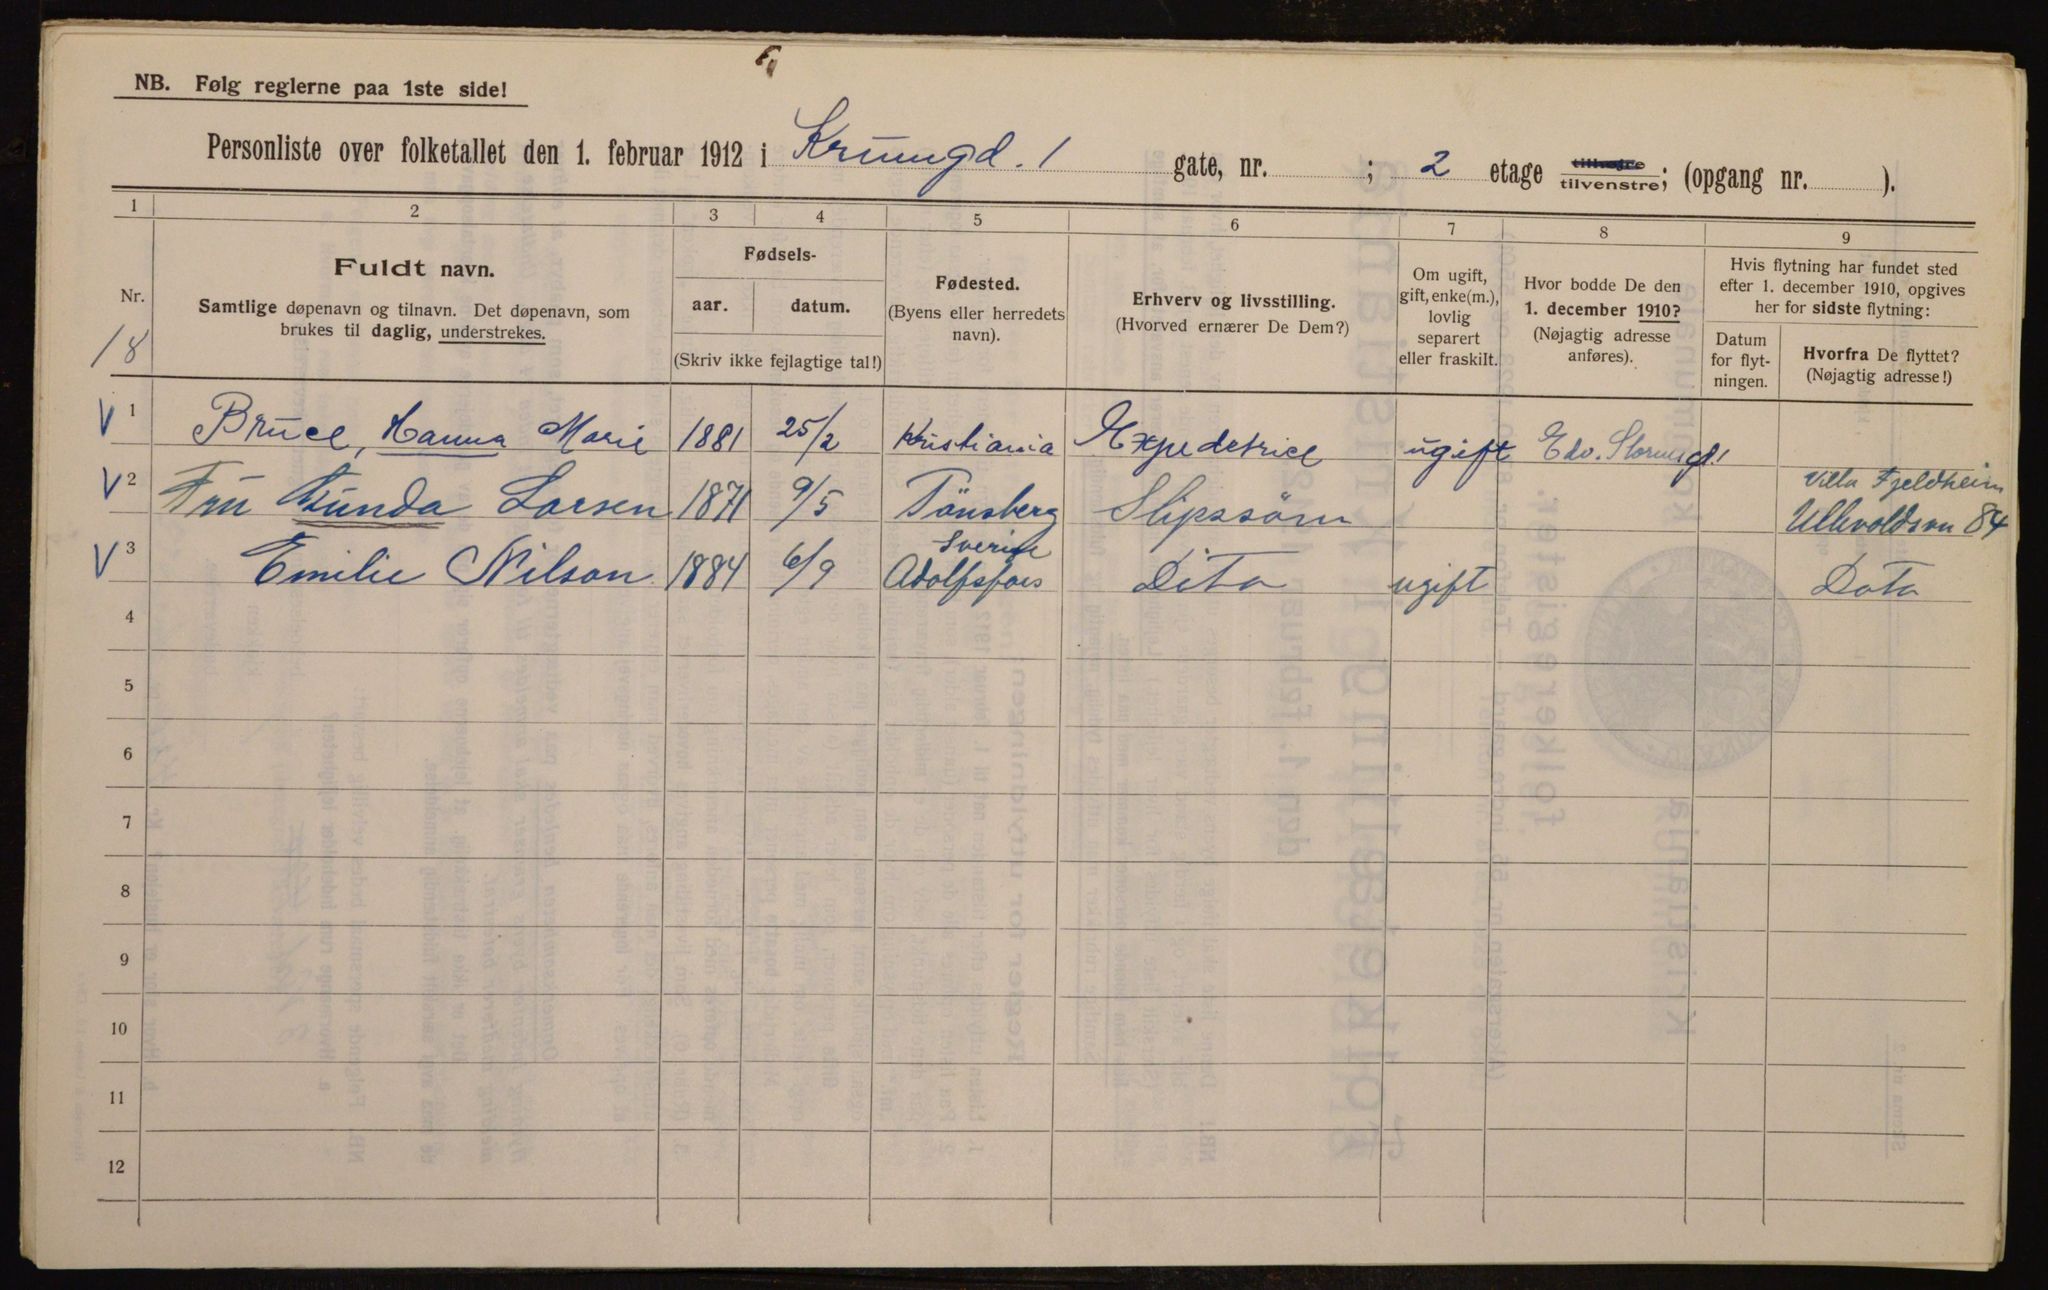 NB. Følg reglerne paa 1ste side!
Personliste over folketallet den 1. februar 1912 i Krumgd. 1 gate, nr. ; 2 etage tilhøjre tilvenstre; (opgang nr. ).
1 2 3 4 5 6 7 8 9
Nr.
18
Fuldt navn.
Samtlige døpenavn og tilnavn. Det døpenavn, som
brukes til daglig, understrekes.
Fødsels-
aar. datum.
(Skriv ikke fejlagtige tal!)
Fødested.
(Byens eller herredets
navn).
Erhverv og livsstilling.
(Hvorved ernærer De Dem?)
Om ugift,
gift, enke(m.),
lovlig
separert
eller fraskilt.
Hvor bodde De den
1. december 1910?
(Nøjagtig adresse
anføres).
Hvis flytning har fundet sted
efter 1. december 1910, opgives
her for sidste flytning:
Datum
for flyt-
ningen.
Hvorfra De flyttet?
(Nøjagtig adresse!)
V 1 Bruce, Hanna Marie 1881 25/2 Kristiania Expedetrice ugift Edv. Stormsgd 1
V 2 Fru Gunda Larsen 1871 9/5 Tönsberg Slipssöm Villa Fjeldheim
Ullevoldsvn 84
V 3 Emilie Nilson 1884 6/9 Sverige
Adolfsfors Dito ugift Dato
4
5
6
7
8
9
10
11
12